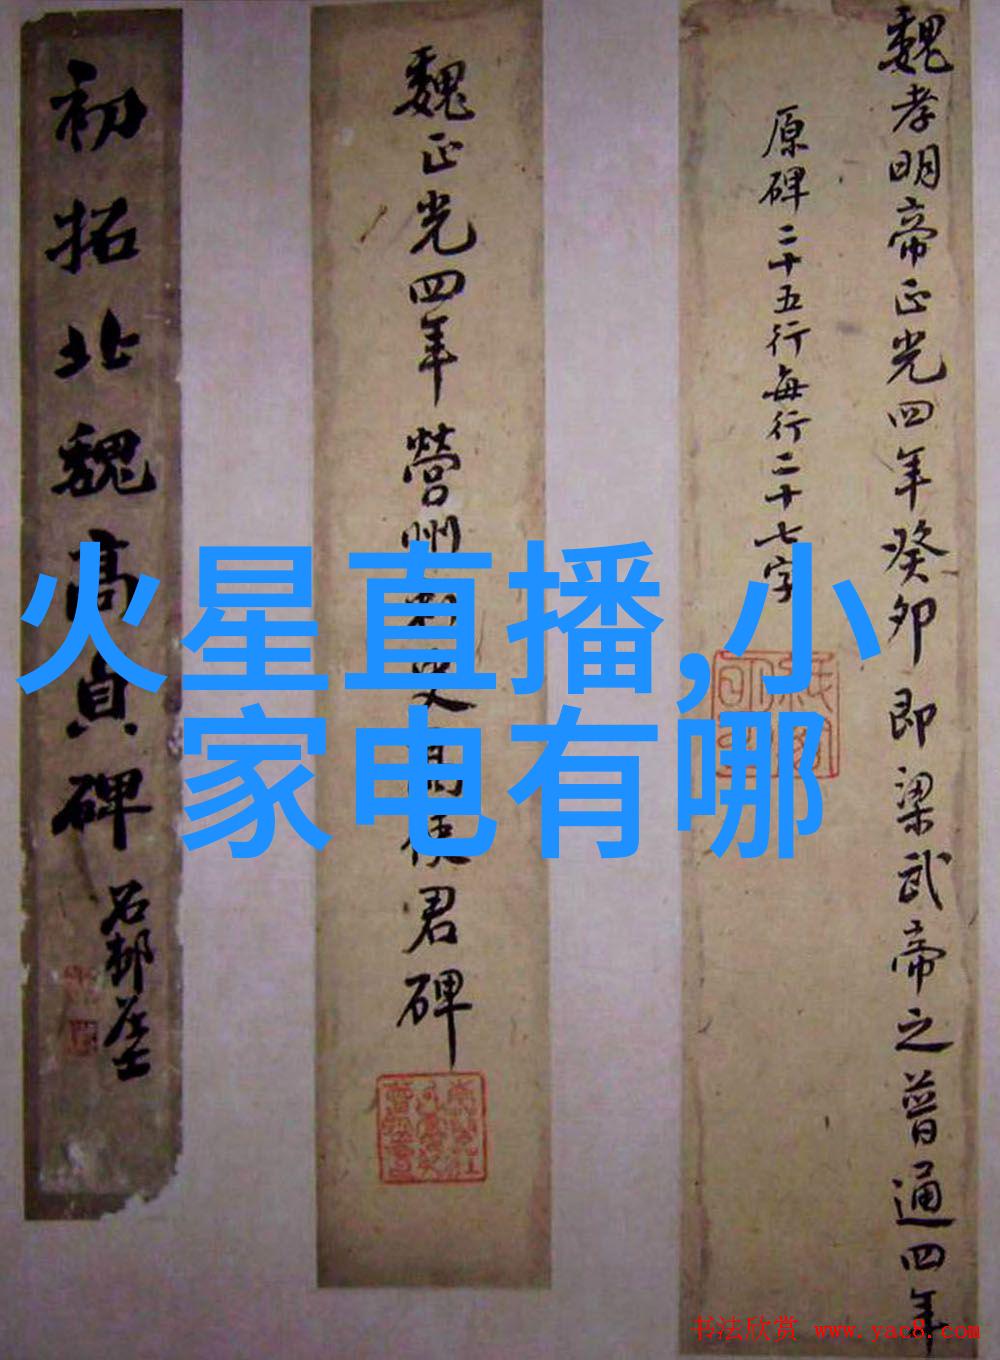 魏孝明帝正光四年癸卯即梁武帝之普通四年
原碑二十五行每行二十七字
魏正光四年營州刺史高使君碑
初拓北魏高貞碑
火星直播,小
家电有哪
书法欣赏 www.yac8.com